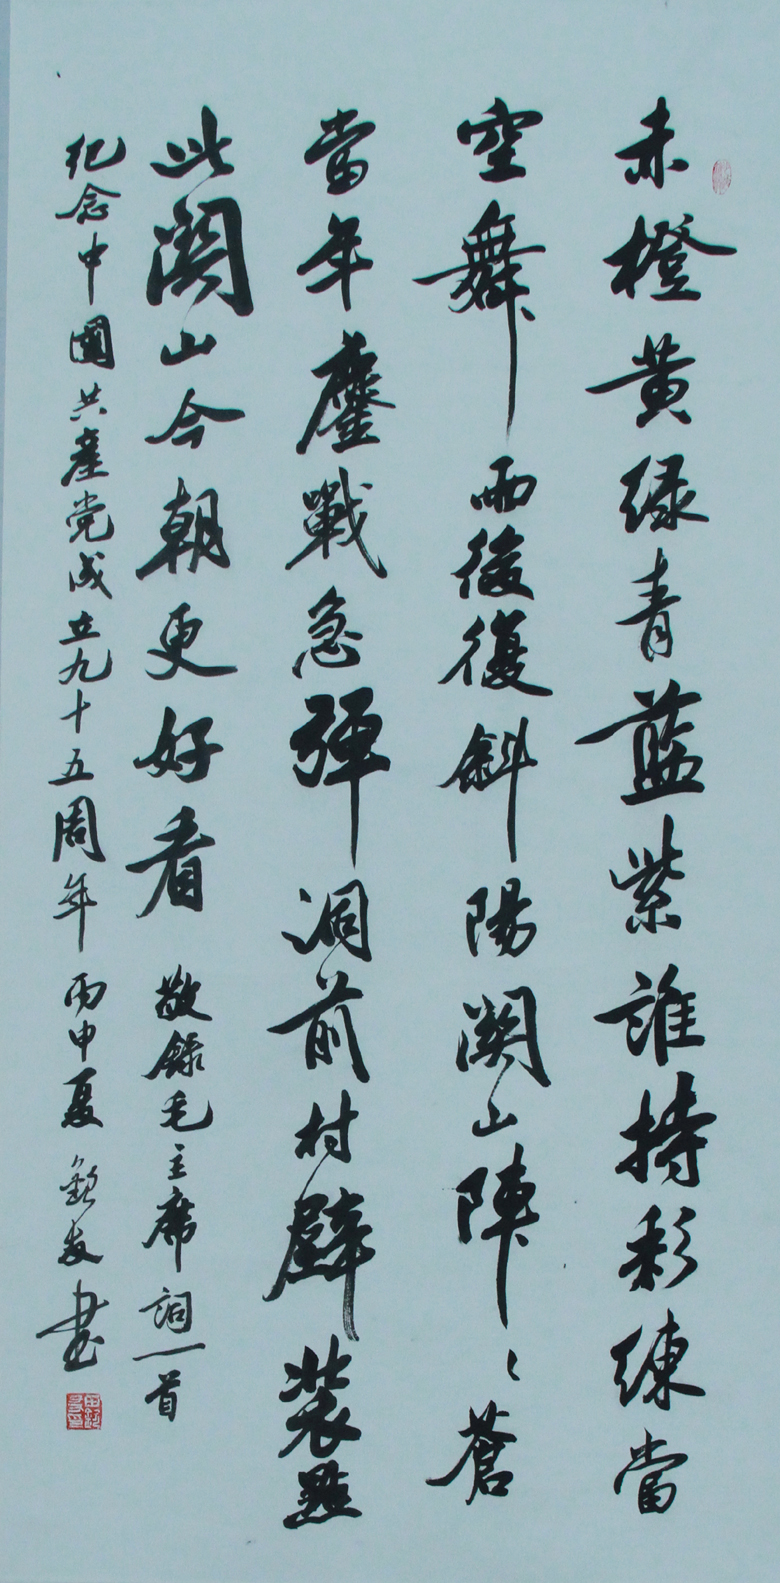 赤橙黄绿青藍紫誰持彩練當
空舞雨後復斜陽関山陣〻蒼
當年鏖戰急弹洞前村壁装點
此関山今朝更好看 敬録毛主席詞一首
纪念中國共產党成立九十五周年 丙申夏 友書